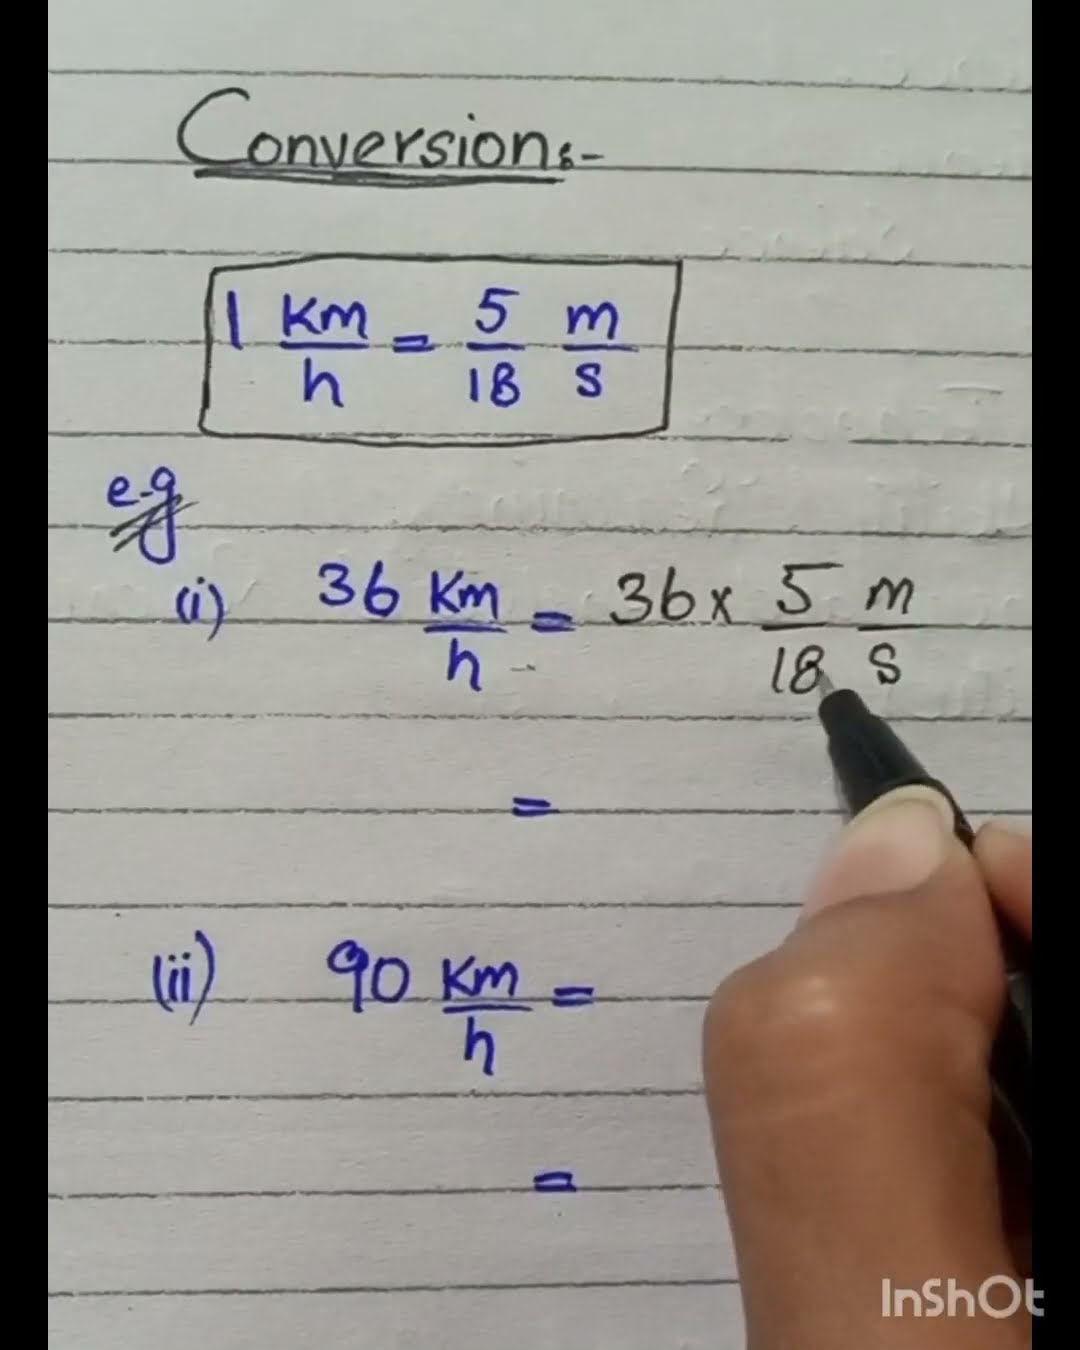 Conversion:-
1 Km/h = 5/18 m/s
e-g
(i) 36 Km/h = 36 x 5/18 m/s
=
(ii) 90 Km/h =
=
InShOt